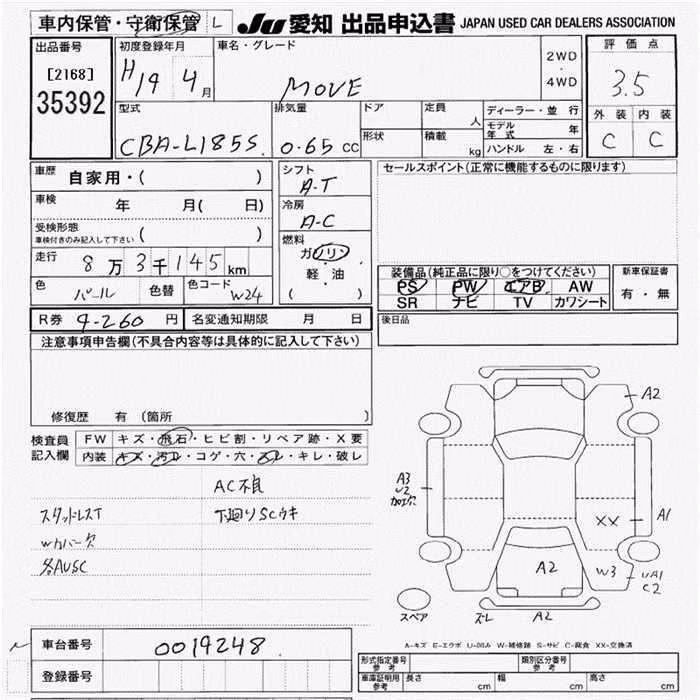 車内保管・守衛保管 L JU 愛知 出品申込書 JAPAN USED CAR DEALERS ASSOCIATION
出品番号 初度登録年月 車名・グレード 2WD・4WD 評価点
[2168] H19 4月 MOVE 3.5
35392
型式 排気量 ドア 定員 人 ディーラー・並行 外装 内装
CBA-L185S. 0.65 CC 形状 積載 kg モデル年式 年 C C
ハンドル 左・右
車歴 自家用・( ) シフト A-T セールスポイント(正常に機能するものに限ります)
車検 年 月( 日) 冷房 A-C
受検形態 車検付きのみ記入して下さい ( ) 燃料 ガソリン・軽・油 ( )
走行 8万3千145km 装備品(純正品に限り○をつけてください) 新車保証書
色 パール 色替 色コード W24 PS PW エアB AW 有・無
SR ナビ TV カワシート
R券 9-260 円 名変通知期限 月 日 後日品
注意事項申告欄(不具合内容等は具体的に記入して下さい)
修復歴 有 (箇所 )
検査員記入欄 FW キズ・飛石・ヒビ割・リペア跡・X要
内装 キズ・汚レ・コゲ・穴・スレ・キレ・破レ
AC不良
スタッドレスT 下廻りSCウキ
Wカバー欠
各AUSC
A2
A3
U2
加工穴
A1
XX
A2
W3 UA1
C2
スペア ズレ A2
A-キズ E-エクボ U-凹み W-補修跡 S-サビ C-腐食 XX-交換済
車台番号 0019248
登録番号
形式指定番号 参考 類別区分番号 参考
車庫証明用 参考 長さ cm 幅 cm 高さ cm